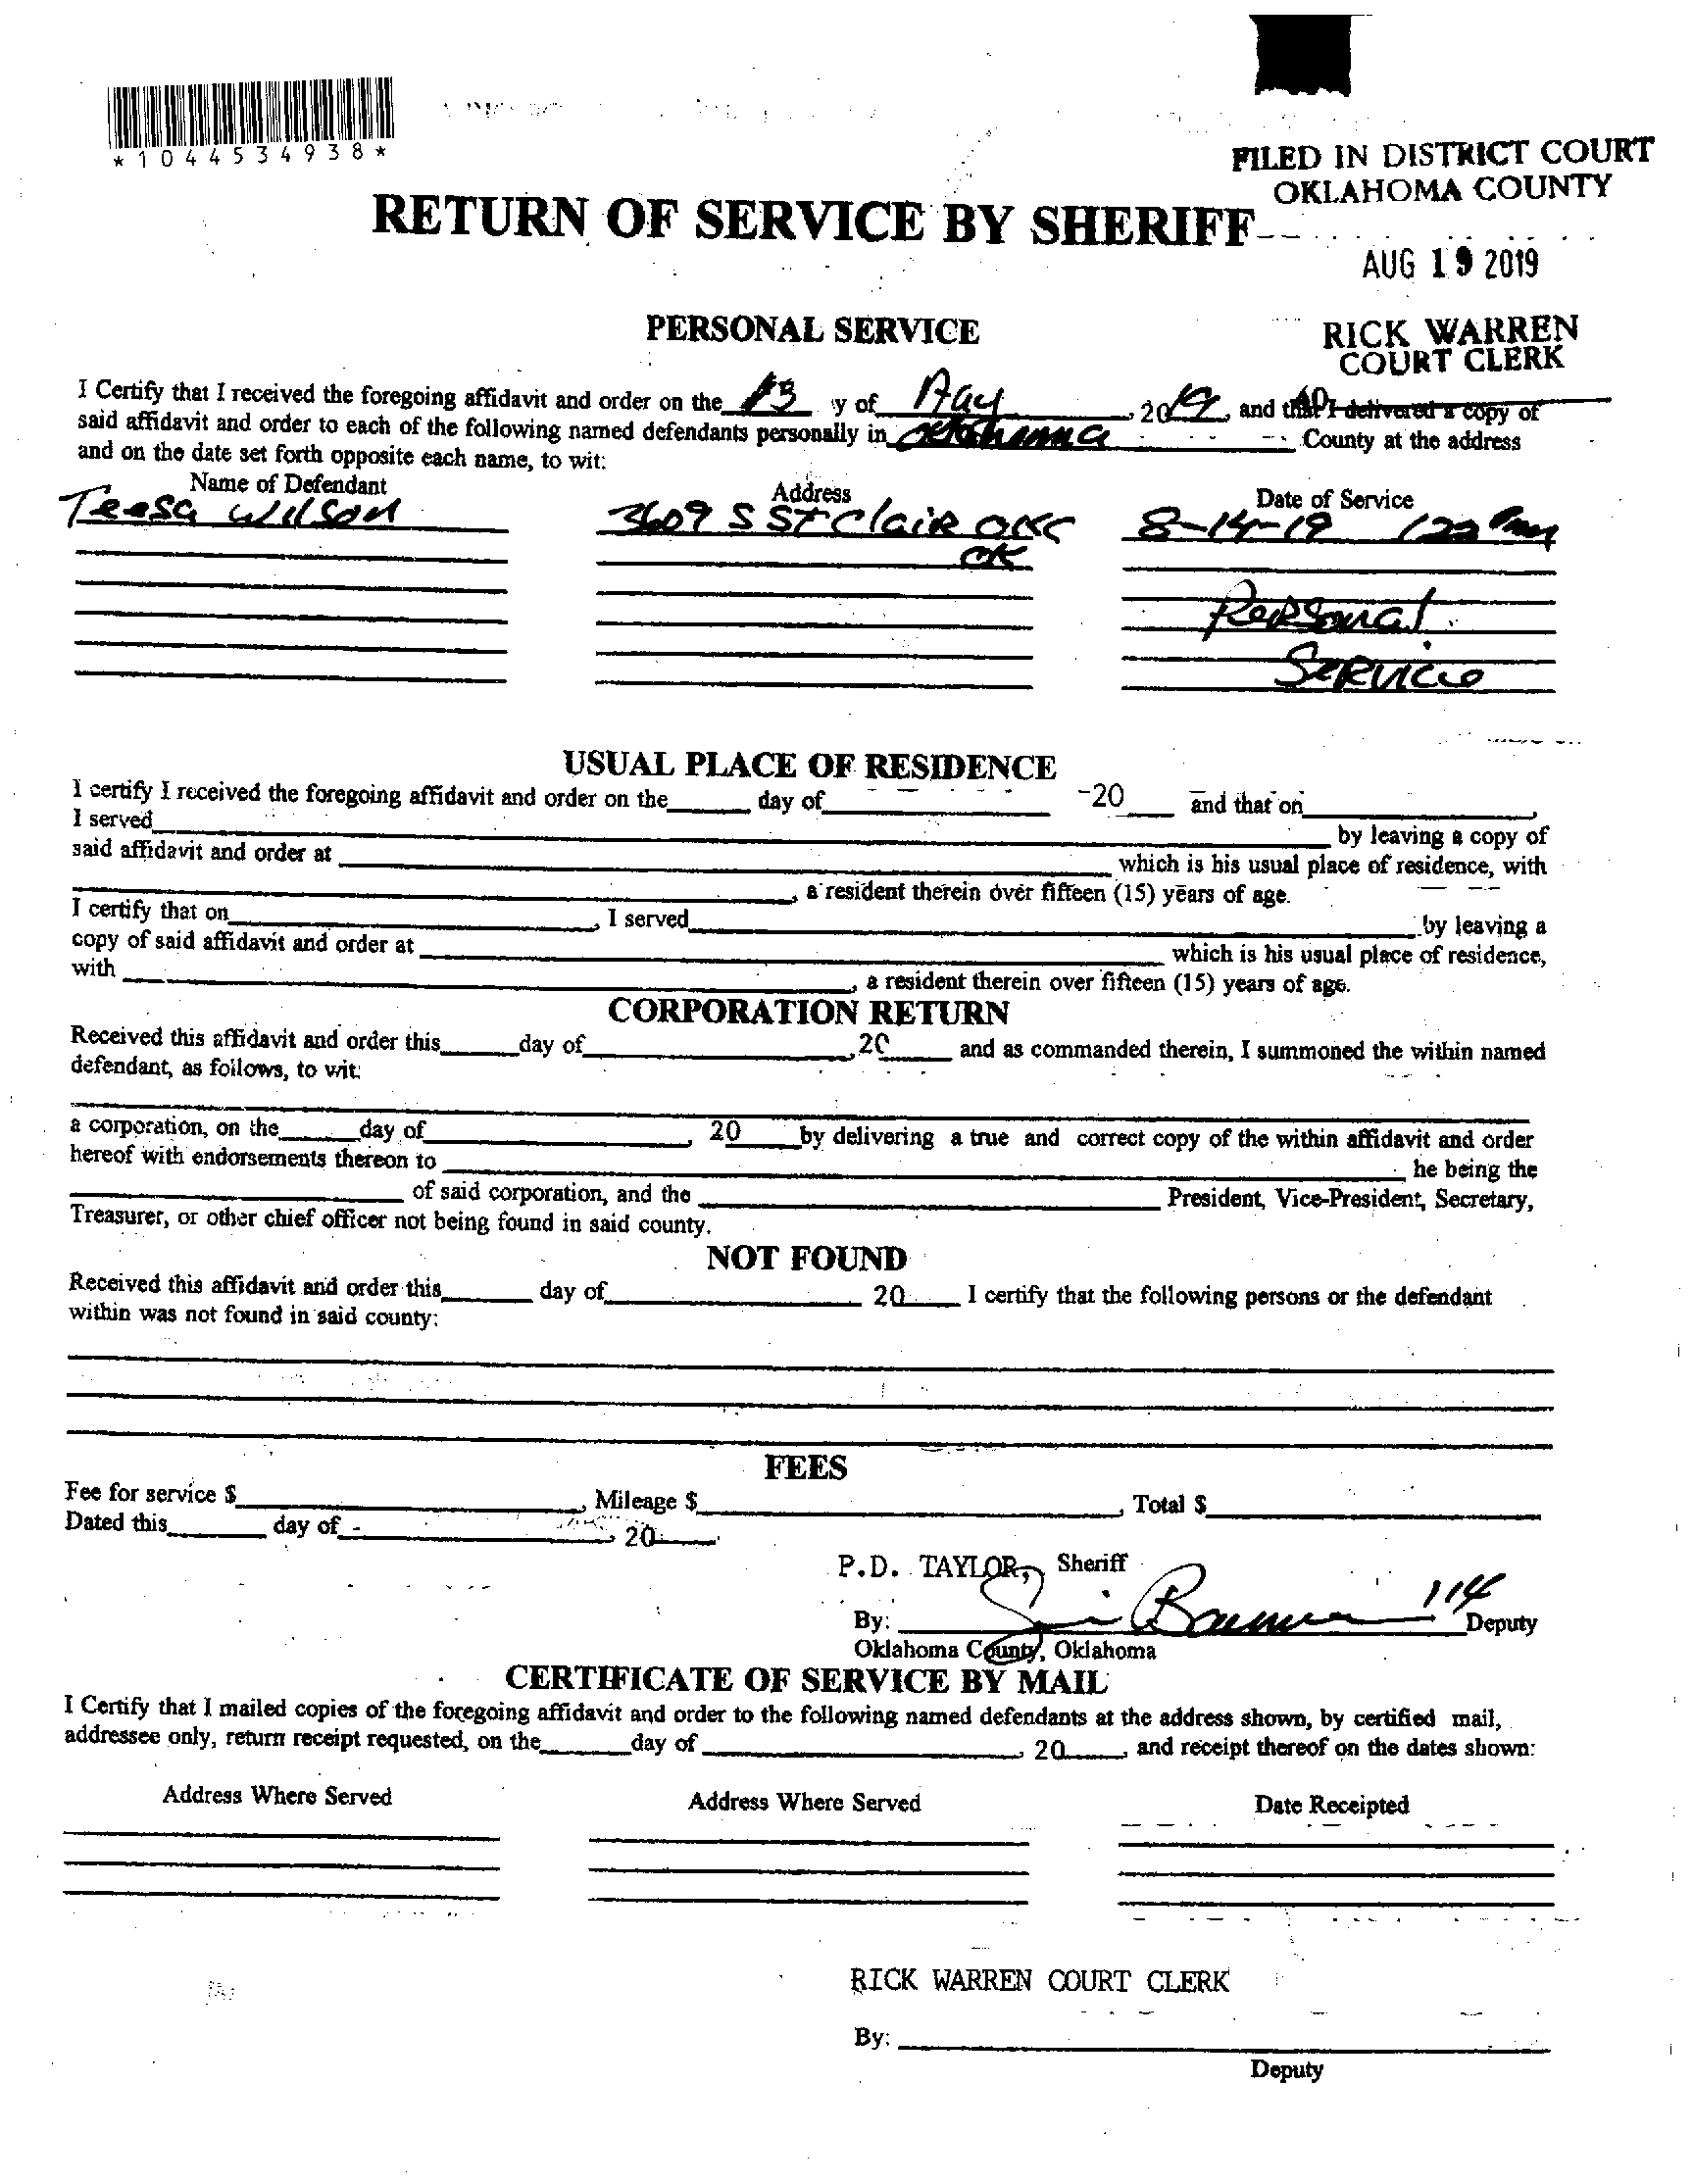 *1044534938*
FILED IN DISTRICT COURT
OKLAHOMA COUNTY
RETURN OF SERVICE BY SHERIFF
AUG 19 2019
PERSONAL SERVICE
RICK WARREN
COURT CLERK
I Certify that I received the foregoing affidavit and order on the 13 y of Aug, 2019, and that I delivered a copy of
said affidavit and order to each of the following named defendants personally in Oklahoma County at the address
and on the date set forth opposite each name, to wit:
Name of Defendant Address Date of Service
Teesa Wilson 3609 S St Clair OKC 8-14-19 122 pm
OK
Personal
Service
USUAL PLACE OF RESIDENCE
I certify I received the foregoing affidavit and order on the ______ day of ______ 20____ and that on ______,
I served ______ by leaving a copy of
said affidavit and order at ______ which is his usual place of residence, with
______, a resident therein over fifteen (15) years of age.
I certify that on ______, I served ______ by leaving a
copy of said affidavit and order at ______ which is his usual place of residence,
with ______, a resident therein over fifteen (15) years of age.
CORPORATION RETURN
Received this affidavit and order this ______ day of ______, 20____ and as commanded therein, I summoned the within named
defendant, as follows, to wit:
a corporation, on the ______ day of ______, 20____ by delivering a true and correct copy of the within affidavit and order
hereof with endorsements thereon to ______ he being the
______ of said corporation, and the ______ President, Vice-President, Secretary,
Treasurer, or other chief officer not being found in said county.
NOT FOUND
Received this affidavit and order this ______ day of ______ 20____ I certify that the following persons or the defendant
within was not found in said county:
FEES
Fee for service $______, Mileage $______, Total $______
Dated this ______ day of ______, 20____
P.D. TAYLOR, Sheriff
By: ______ 114 Deputy
Oklahoma County, Oklahoma
CERTIFICATE OF SERVICE BY MAIL
I Certify that I mailed copies of the foregoing affidavit and order to the following named defendants at the address shown, by certified mail,
addressee only, return receipt requested, on the ______ day of ______, 20____, and receipt thereof on the dates shown:
Address Where Served Address Where Served Date Receipted
RICK WARREN COURT CLERK
By: ______
Deputy